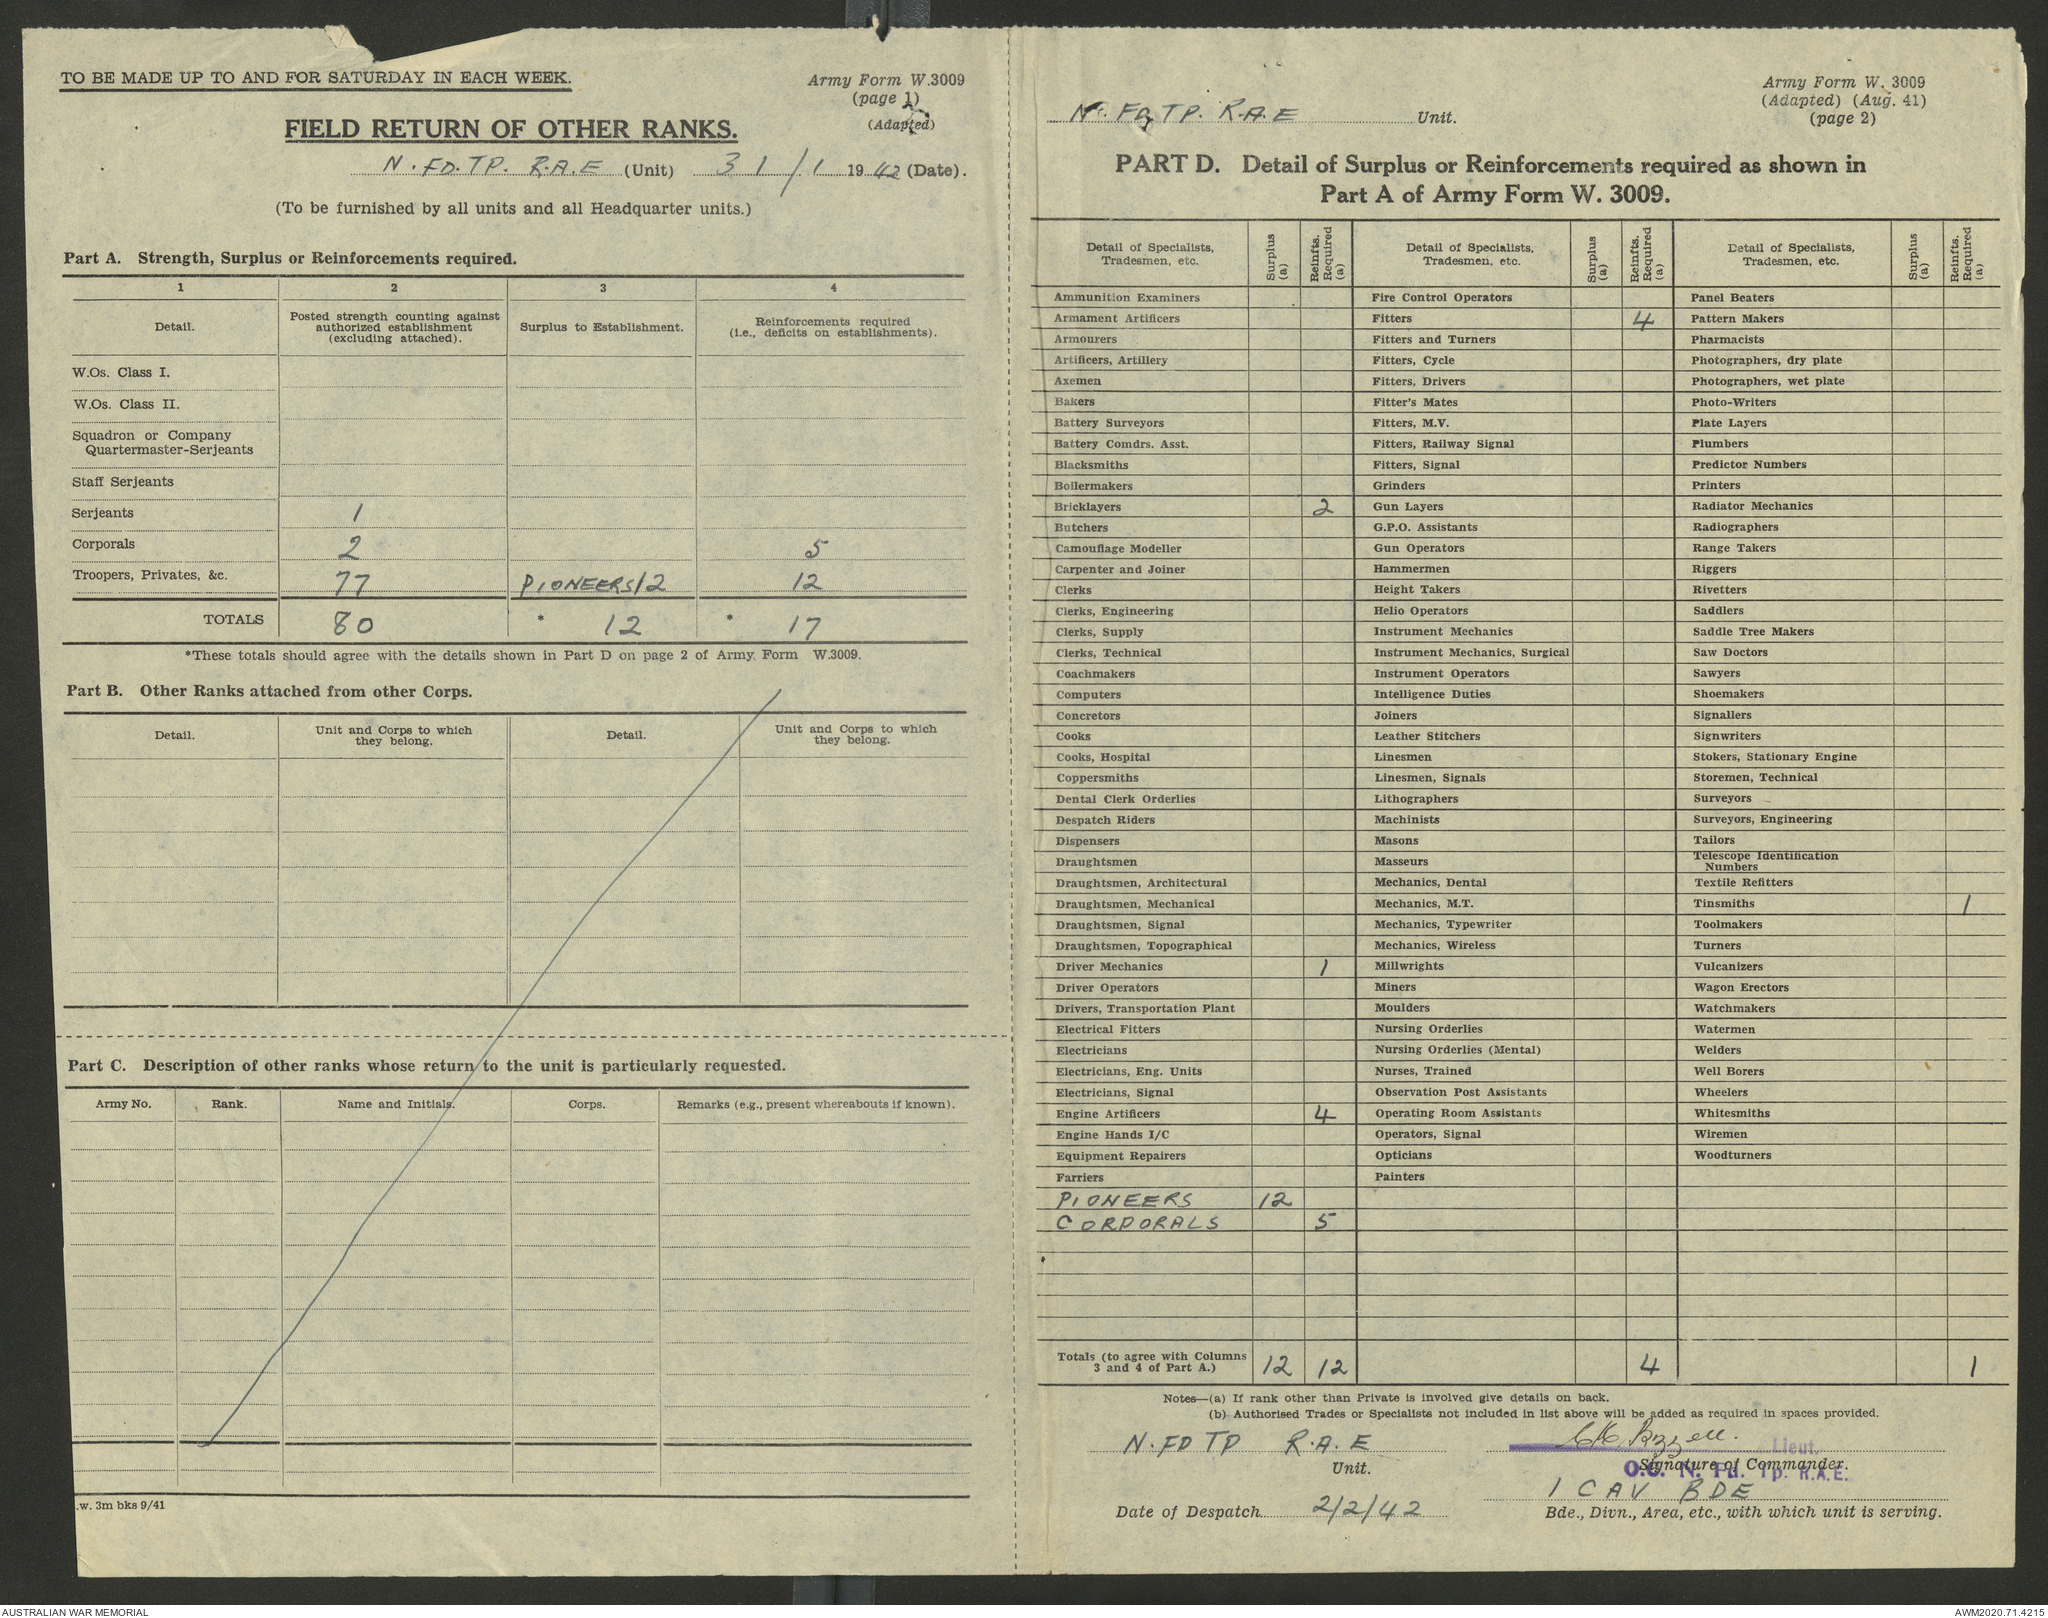 TO BE MADE UP TO AND FOR SATURDAY IN EACH WEEK.
Army Form W.3009
(page 1)
(Adapted)
FIELD RETURN OF OTHER RANKS.
N. FD. TP. R.A.E (Unit) 31/1 1942 (Date).
(To be furnished by all units and all Headquarter units.)
Part A. Strength, Surplus or Reinforcements required.
1 2 3 4
Detail. Posted strength counting against authorized establishment (excluding attached). Surplus to Establishment. Reinforcements required (i.e., deficits on establishments).
W.Os. Class I.
W.Os. Class II.
Squadron or Company
Quartermaster-Serjeants
Staff Serjeants
Serjeants 1
Corporals 2 5
Troopers, Privates, &c. 77 PIONEERS 12 12
TOTALS 80 * 12 * 17
*These totals should agree with the details shown in Part D on page 2 of Army Form W.3009.
Part B. Other Ranks attached from other Corps.
Detail. Unit and Corps to which they belong. Detail. Unit and Corps to which they belong.
Part C. Description of other ranks whose return to the unit is particularly requested.
Army No. Rank. Name and Initials. Corps. Remarks (e.g., present whereabouts if known).
.w. 3m bks 9/41
N. FD TP. R.A.E Unit.
Army Form W. 3009
(Adapted) (Aug. 41)
(page 2)
PART D. Detail of Surplus or Reinforcements required as shown in
Part A of Army Form W. 3009.
Detail of Specialists, Tradesmen, etc. Surplus (a) Reinfts. Required (a) Detail of Specialists, Tradesmen, etc. Surplus (a) Reinfts. Required (a) Detail of Specialists, Tradesmen, etc. Surplus (a) Reinfts. Required (a)
Ammunition Examiners Fire Control Operators Panel Beaters
Armament Artificers Fitters 4 Pattern Makers
Armourers Fitters and Turners Pharmacists
Artificers, Artillery Fitters, Cycle Photographers, dry plate
Axemen Fitters, Drivers Photographers, wet plate
Bakers Fitter's Mates Photo-Writers
Battery Surveyors Fitters, M.V. Plate Layers
Battery Comdrs. Asst. Fitters, Railway Signal Plumbers
Blacksmiths Fitters, Signal Predictor Numbers
Boilermakers Grinders Printers
Bricklayers 2 Gun Layers Radiator Mechanics
Butchers G.P.O. Assistants Radiographers
Camouflage Modeller Gun Operators Range Takers
Carpenter and Joiner Hammermen Riggers
Clerks Height Takers Rivetters
Clerks, Engineering Helio Operators Saddlers
Clerks, Supply Instrument Mechanics Saddle Tree Makers
Clerks, Technical Instrument Mechanics, Surgical Saw Doctors
Coachmakers Instrument Operators Sawyers
Computers Intelligence Duties Shoemakers
Concretors Joiners Signallers
Cooks Leather Stitchers Signwriters
Cooks, Hospital Linesmen Stokers, Stationary Engine
Coppersmiths Linesmen, Signals Storemen, Technical
Dental Clerk Orderlies Lithographers Surveyors
Despatch Riders Machinists Surveyors, Engineering
Dispensers Masons Tailors
Draughtsmen Masseurs Telescope Identification Numbers
Draughtsmen, Architectural Mechanics, Dental Textile Refitters
Draughtsmen, Mechanical Mechanics, M.T. Tinsmiths 1
Draughtsmen, Signal Mechanics, Typewriter Toolmakers
Draughtsmen, Topographical Mechanics, Wireless Turners
Driver Mechanics 1 Millwrights Vulcanizers
Driver Operators Miners Wagon Erectors
Drivers, Transportation Plant Moulders Watchmakers
Electrical Fitters Nursing Orderlies Watermen
Electricians Nursing Orderlies (Mental) Welders
Electricians, Eng. Units Nurses, Trained Well Borers
Electricians, Signal Observation Post Assistants Wheelers
Engine Artificers 4 Operating Room Assistants Whitesmiths
Engine Hands I/C Operators, Signal Wiremen
Equipment Repairers Opticians Woodturners
Farriers Painters
PIONEERS 12
CORPORALS 5
Totals (to agree with Columns 3 and 4 of Part A.) 12 12 4 1
Notes—(a) If rank other than Private is involved give details on back.
(b) Authorised Trades or Specialists not included in list above will be added as required in spaces provided.
N. FD TP R.A.E
Unit.
Lieut.
Signature of Commander.
O.C. N. Fd. Tp. R.A.E.
1 CAV BDE
Date of Despatch 2/2/42
Bde., Divn., Area, etc., with which unit is serving.
AUSTRALIAN WAR MEMORIAL
AWM2020.71.4215